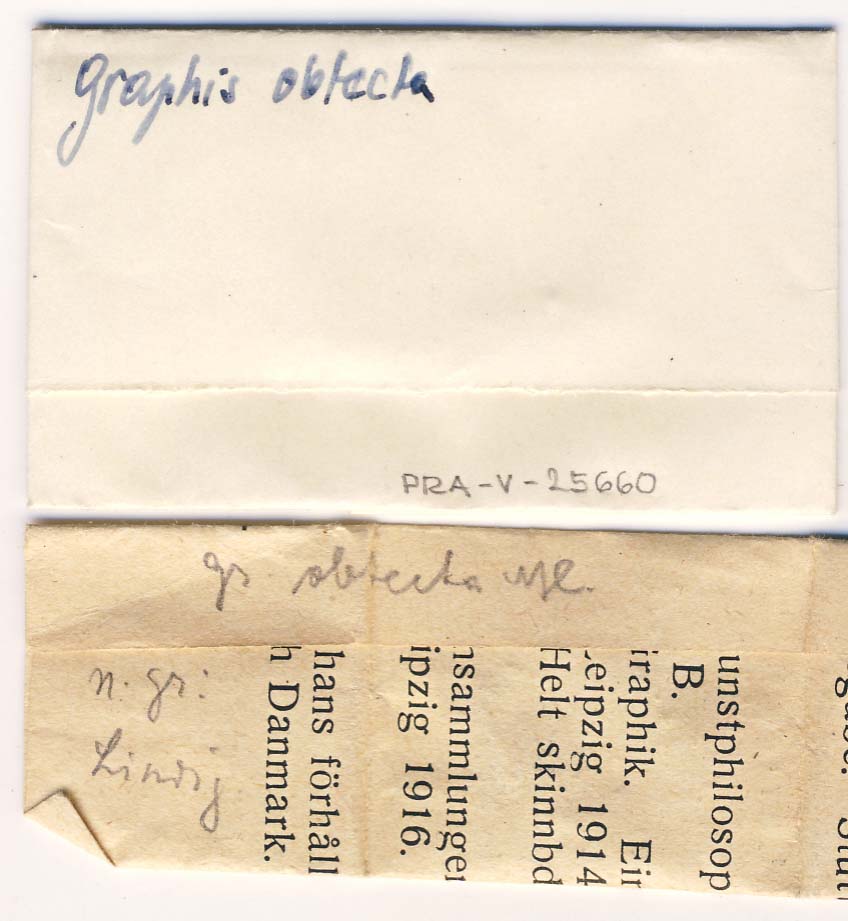 Graphis obtecta
PRA-V-25660
gr obtecta Nyl.
n. gr:
Lindig
unstphilosop
B.
iraphik. Ein
eipzig 1914
Helt skinnbd
nsammlungen
ipzig 1916.
hans förhåll
h Danmark.